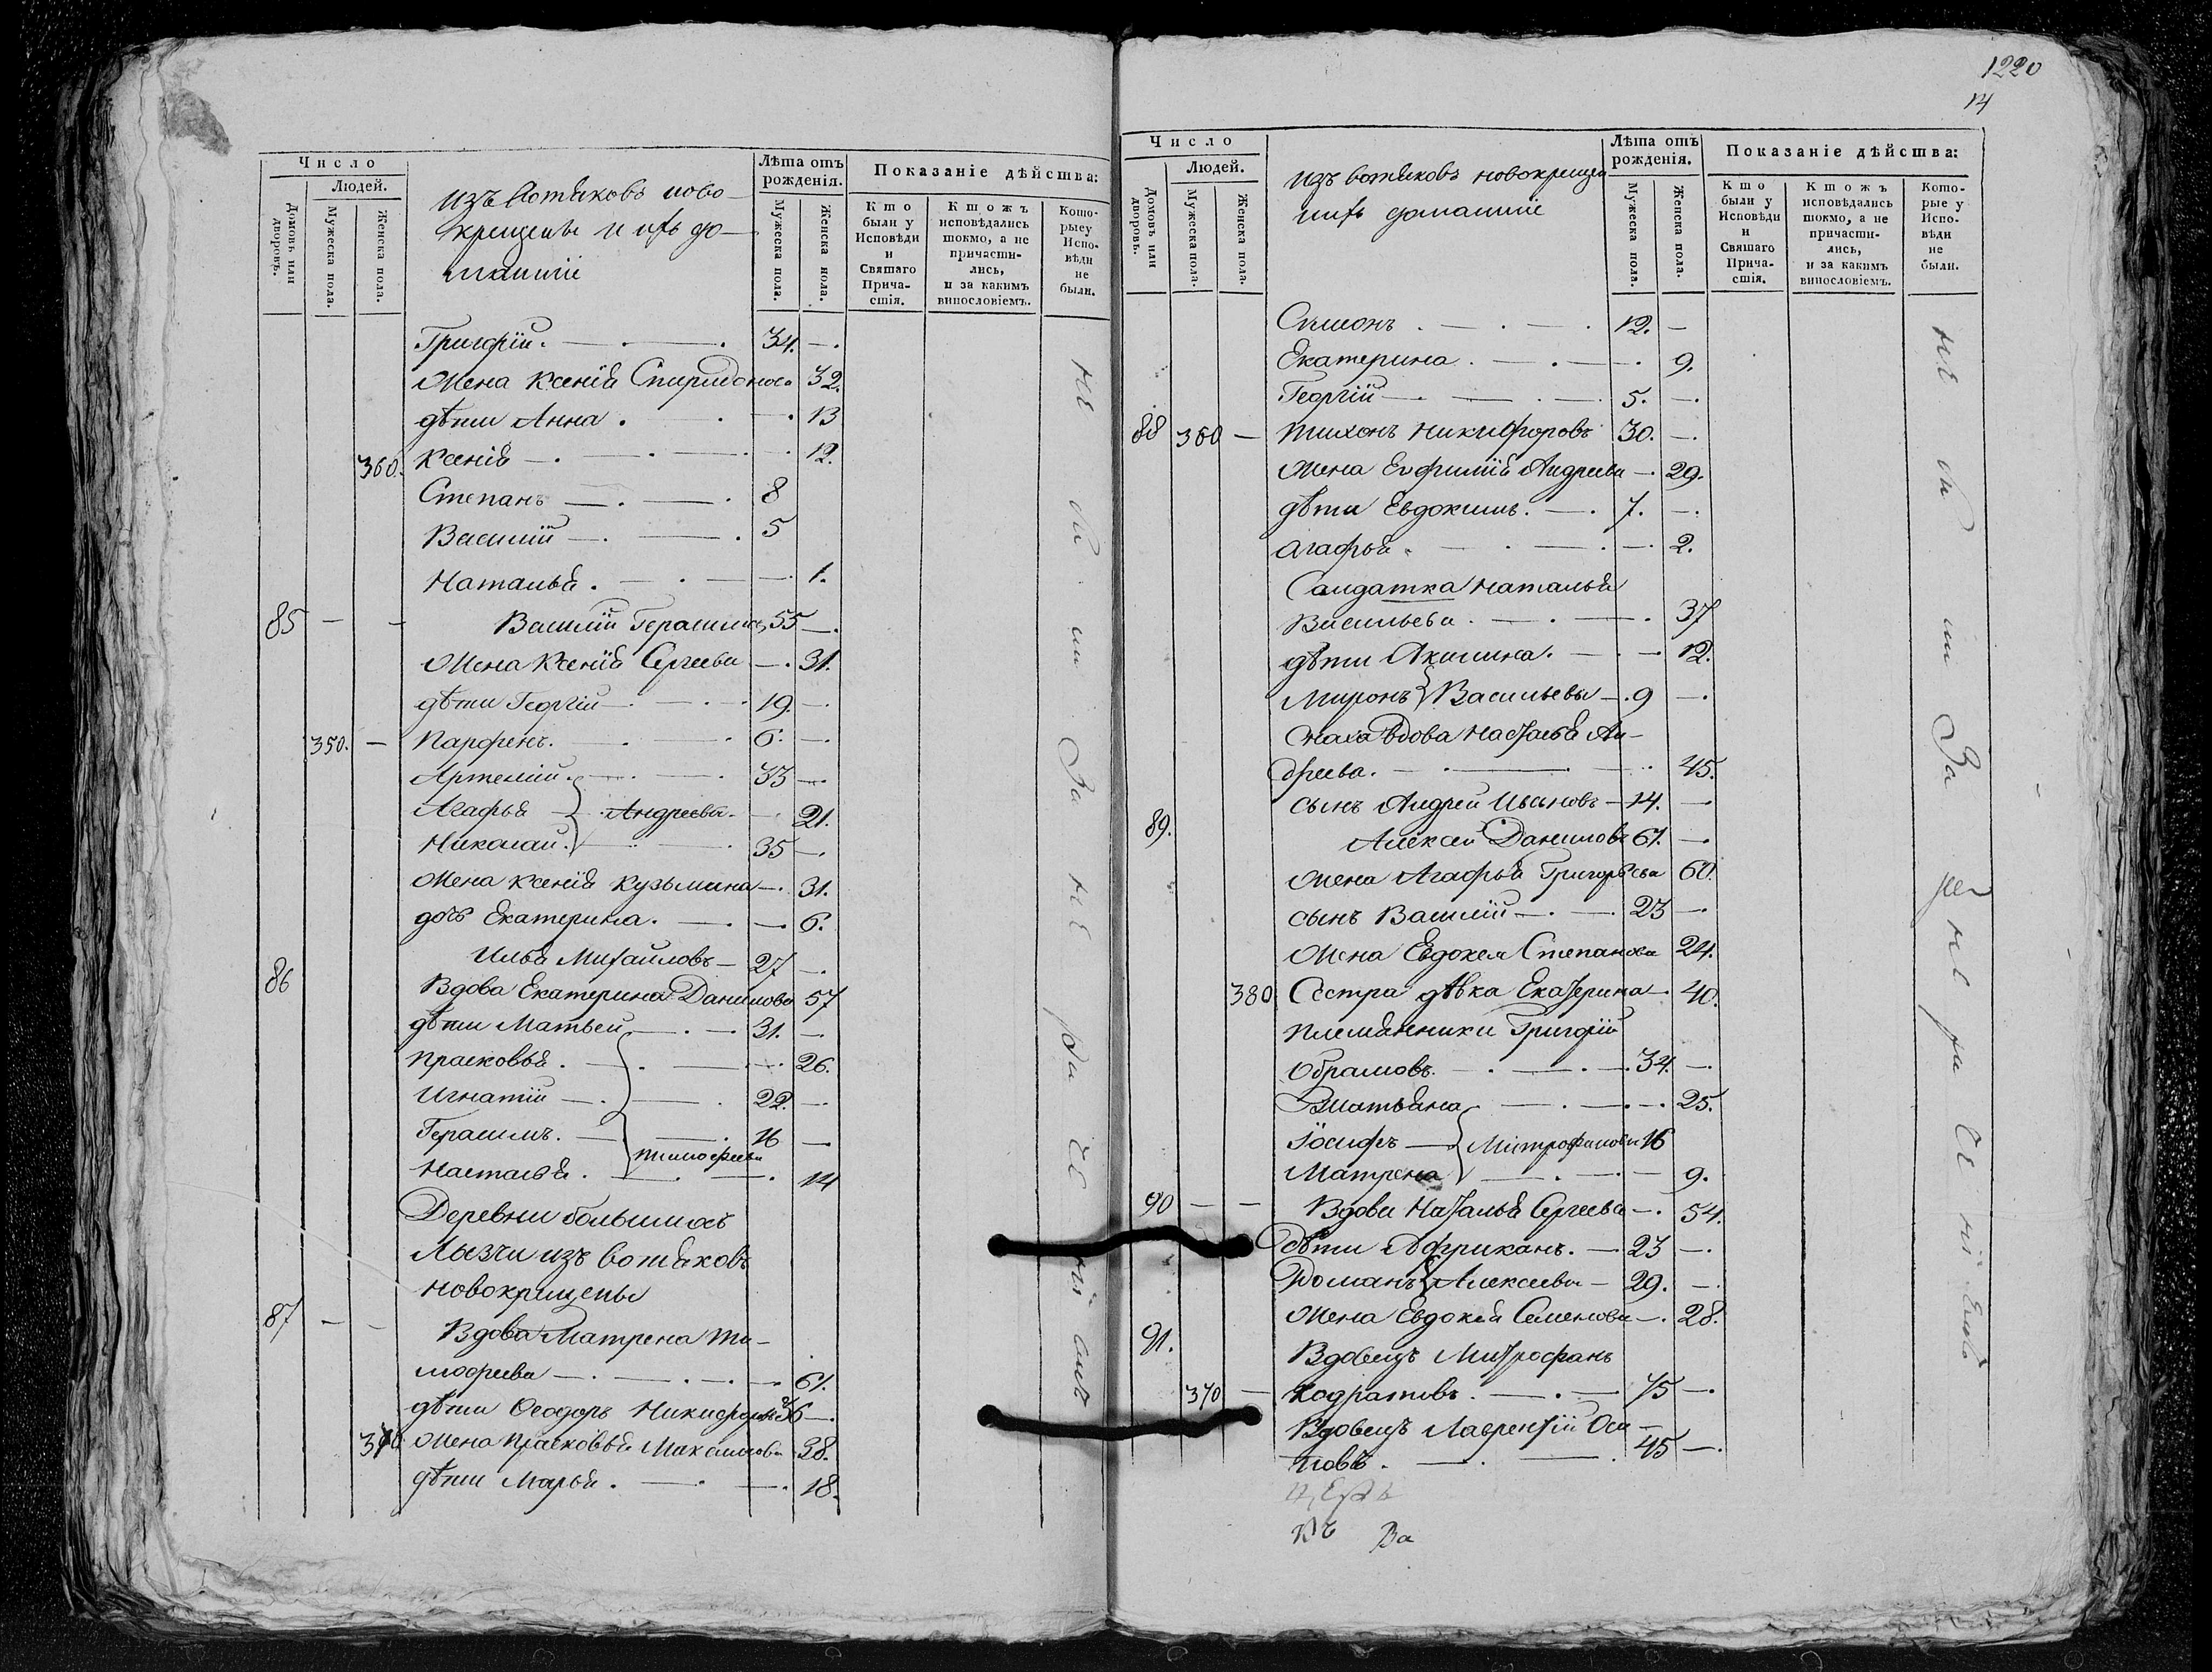 Число
Людей.
Домовъ или дворовъ.
Мужеска пола.
Женска пола.
изъ Вотяковъ ново-
крещены и ихъ до-
машніе
Лѣта отъ рожденія.
Мужеска пола.
Женска пола.
Показаніе дѣйства:
Кто были у Исповѣди и Святаго Причастія.
Ктожъ исповѣдались токмо, а не причастились, и за какимъ винословіемъ.
Которые у Исповѣди не были.
Григорій. 34. —
Жена Ксенія Спиридонова 32.
дѣти Анна. — 13
360. Ксенія — 12.
Степанъ — 8
Василій — 5
Наталья. — 1.
85 — — Василій Герасимовъ 55 —
Жена Ксенія Сергеева — 31.
дѣти Георгій — 19. —
350. — Парфенъ. 6. —
Артемій. 33 —
Агафья — Андреевы. 21.
Николай. 35 —
Жена Ксенія Кузьмина — 31.
дочь Екатерина. — 6.
86 Илья Михайловъ — 27 —
Вдова Екатерина Данилова 57
дѣти Матвей — 31. —
Прасковья. — 26.
Игнатій — 22. —
Герасимъ. — 16 —
Тимофеевы
Настасья. — 14
Деревни большихъ
Лызи изъ вотяковъ
новокрещены
87 — — Вдова Матрена Ти-
мофеева — 61.
дѣти Феодоръ Никифоровъ 36 —
370 Жена Прасковья Максимова 38.
дѣти Марья. — 18.
не были За не ра че ни емъ
1220
14
Число
Людей.
Домовъ или дворовъ.
Мужеска пола.
Женска пола.
изъ вотяковъ новокрещен
и ихъ домашніе
Лѣта отъ рожденія.
Мужеска пола.
Женска пола.
Показаніе дѣйства:
Кто были у Исповѣди и Святаго Причастія.
Ктожъ исповѣдались токмо, а не причастились, и за какимъ винословіемъ.
Которые у Исповѣди не были.
Симонъ. — 12. —
Екатерина. — 9.
Георгій — 5. —
88 360 — Тихонъ Никифоровъ 30. —
Жена Евфимія Андреева — 29.
дѣти Евдокимъ. — 7. —
Агафья. — 2.
Салдатка Наталья
Васильева. — 37
дѣти Акилина. — 12.
Миронъ Васильевы — 9 —
Сноха Вдова Настасья Ан-
дреева. — 45.
сынъ Андрей Ивановъ — 14. —
89. Алексей Даниловъ 61. —
Жена Агафья Григорьева 60.
сынъ Василій — 23 —
Жена Евдокея Степанова 24.
380 Сестра дѣвка Екатерина — 40.
Племянники Григорій
Обрамовъ. — 34. —
Татьяна — 25.
Іосифъ — Митрофановы 16
Матрена — 9.
90 — — Вдова Наталья Сергеева — 54.
Дѣти Африканъ. — 23 —
Романъ Алексеевы — 29. —
Жена Евдокея Семенова — 28.
91. Вдовецъ Митрофанъ
370 — Кодратовъ. — 75 —
Вдовецъ Лаврентій Оси-
повъ. — 45 —
Ва
не были За не ра че ніемъ